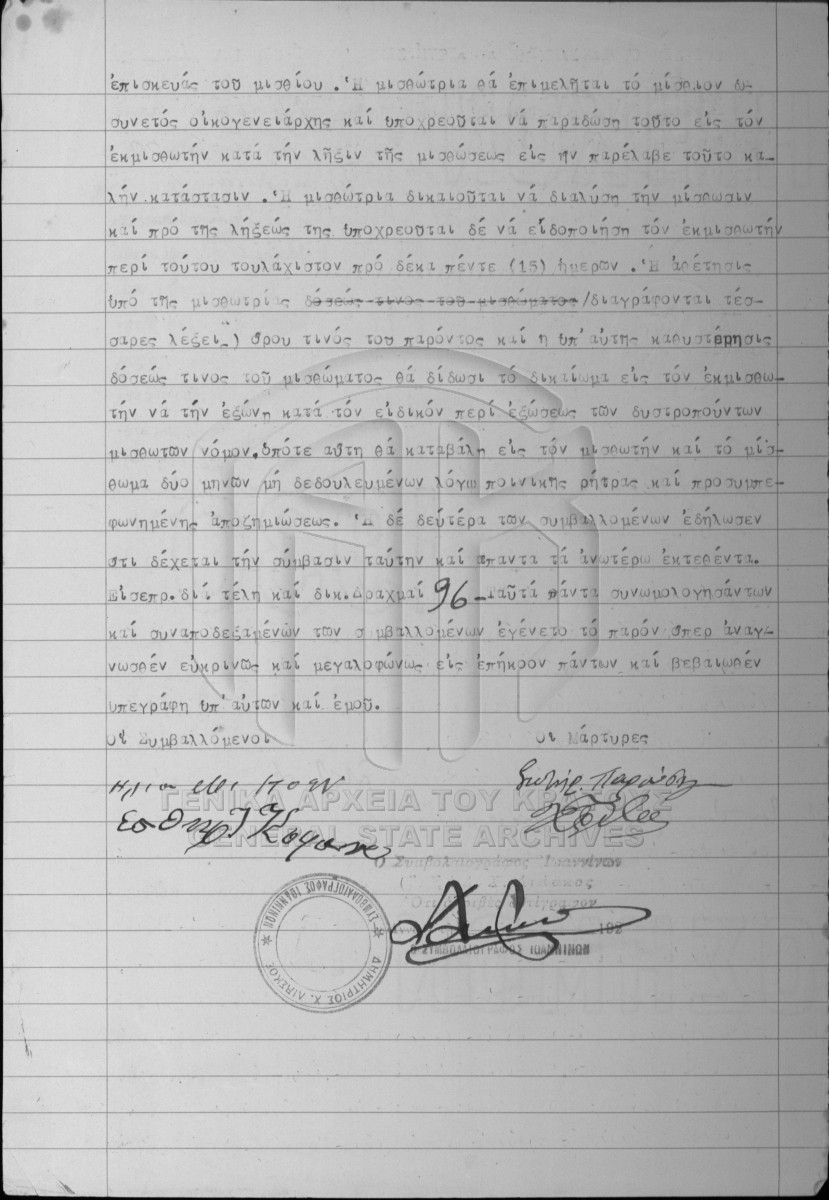 ἐπισκευάς τοῦ μισθίου . Ἡ μισθώτρια θά ἐπιμελῆται τό μίσθιον ὡς
συνετός οἰκογενειάρχης καί υποχρεοῦται νά παραδώση τοῦτο εἰς τόν
ἐκμισθωτήν κατά τήν λῆξιν τῆς μισθώσεως εἰς ἥν παρέλαβε τοῦτο κα-
λήν κατάστασιν . Ἡ μισθώτρια δικαιοῦται νά διαλύση τήν μίσθωσιν
καί πρό τῆς λήξεώς της υποχρεουται δέ νά εἰδοποιήση τόν ἐκμισθωτήν
περί τούτου τουλάχιστον πρό δέκα πέντε (15) ἡμερων . Ἡ ἀθέτησις
υπό τῆς μισθωτρίας δόσεώς τινος τοῦ μισθώματος/διαγράφονται τέσ-
σαρες λέξεις) ὅρου τινός του παρόντος καί η υπ'αὐτης καθυστέρησις
δόσεώς τινος τοῦ μισθώματος θά δίδωσι τό δικαίωμα εἰς τόν ἐκμισθω-
τήν νά τήν ἐξώνη κατά τόν εἰδικόν περί ἐξώσεως τῶν δυστροπούντων
μισθωτων νόμον.ὁπότε αὕτη θά καταβάλη εἰς τόν μισθωτήν καί τό μίσ-
θωμα δύο μηνῶν μή δεδουλευμένων λόγω ποινικῆς ρήτρας καί προσυμπε-
φωνημένης ἀποζημιώσεως. Ἡ δέ δευτέρα τῶν συμβαλλομένων ἐδήλωσεν
ὅτι δέχεται τήν σύμβασιν ταύτην καί απαντα τά ἀνωτέρω ἐκτεθέντα.
Εἰσεπρ.διά τέλη καί δικ.Δραχμαί 96-Ταῦτα πάντα συνωμολογησάντων
καί συναποδεξαμένων των συμβαλλομένων ἐγένετο τό παρόν ὅπερ ἀναγ-
νωσθέν εὐκρινῶς καί μεγαλοφώνως εἰς ἐπήκοον πάντων καί βεβαιωθέν
υπεγράφη ὑπ'αὐτων καί ἐμοῦ.
Οἱ Συμβαλλόμενοι Οι Μάρτυρες
ΓΕΝΙΚΑ ΑΡΧΕΙΑ ΤΟΥ ΚΡΑΤΟΥΣ
GENERAL STATE ARCHIVES
Ὁ Συμβολαιογράφος Ἰωαννίνων
Ὅτι ἀκριβές ἀντίγραφον
192
Ο ΣΥΜΒΟΛΑΙΟΓΡΑΦΟΣ ΙΩΑΝΝΙΝΩΝ
ΣΥΜΒΟΛΑΙΟΓΡΑΦΟΣ ΙΩΑΝΝΙΝΩΝ
ΔΗΜΗΤΡΙΟΣ Χ. ΛΙΑΣΚΟΣ